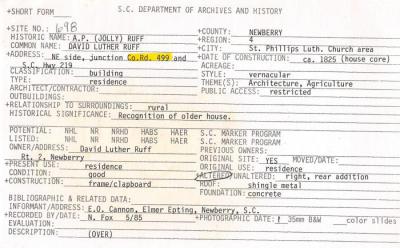 +SHORT FORM S.C. DEPARTMENT OF ARCHIVES AND HISTORY
+SITE NO.: 698 +COUNTY: NEWBERRY
HISTORIC NAME: A.P. (JOLLY) RUFF +REGION: 4
COMMON NAME: DAVID LUTHER RUFF +CITY: St. Phillips Luth. Church area
+ADDRESS: NE side, junction Co.Rd. 499 and +DATE OF CONSTRUCTION: ca. 1825 (house core)
S.C. Hwy 219 ACREAGE:
CLASSIFICATION: building STYLE: vernacular
TYPE: residence THEME(S): Architecture, Agriculture
ARCHITECT/CONTRACTOR: PUBLIC ACCESS: restricted
OUTBUILDINGS:
+RELATIONSHIP TO SURROUNDINGS: rural
HISTORICAL SIGNIFICANCE: Recognition of older house.
POTENTIAL: NHL NR NRHD HABS HAER S.C. MARKER PROGRAM
LISTED: NHL NR NRHD HABS HAER S.C. MARKER PROGRAM
OWNER/ADDRESS: David Luther Ruff PREVIOUS OWNERS:
Rt. 2, Newberry ORIGINAL SITE: YES MOVED/DATE:
+PRESENT USE: residence ORIGINAL USE: residence
CONDITION: good ALTERED/UNALTERED: right, rear addition
+CONSTRUCTION: frame/clapboard ROOF: shingle metal
FOUNDATION: concrete
BIBLIOGRAPHIC & RELATED DATA:
INFORMANT/ADDRESS: E.O. Cannon, Elmer Epting, Newberry, S.C.
+RECORDED BY/DATE: N. Fox 5/85 +PHOTOGRAPHIC DATE: 35mm B&W color slides
EVALUATION:
DESCRIPTION: (OVER)